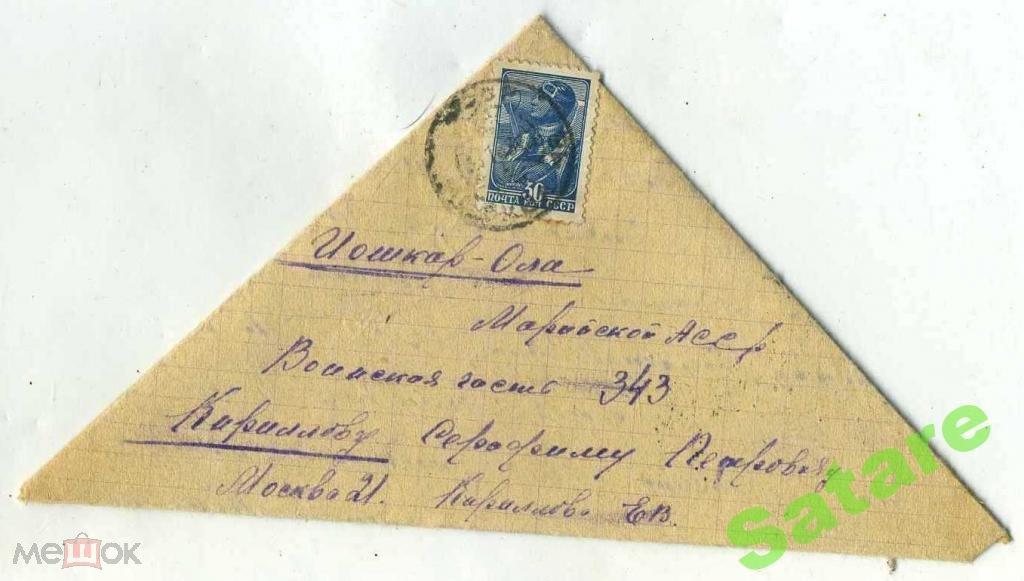 30
ПОЧТА КОП СССР
Иошкар-Ола
Марийской АССР
Воинская часть 343
Кириллову Серафиму Петровичу
Москва 21. Кириллова Е.В.
Satare
мешок